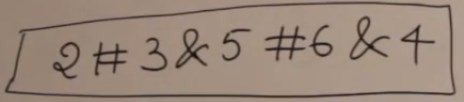 2 # 3 & 5 # 6 & 4